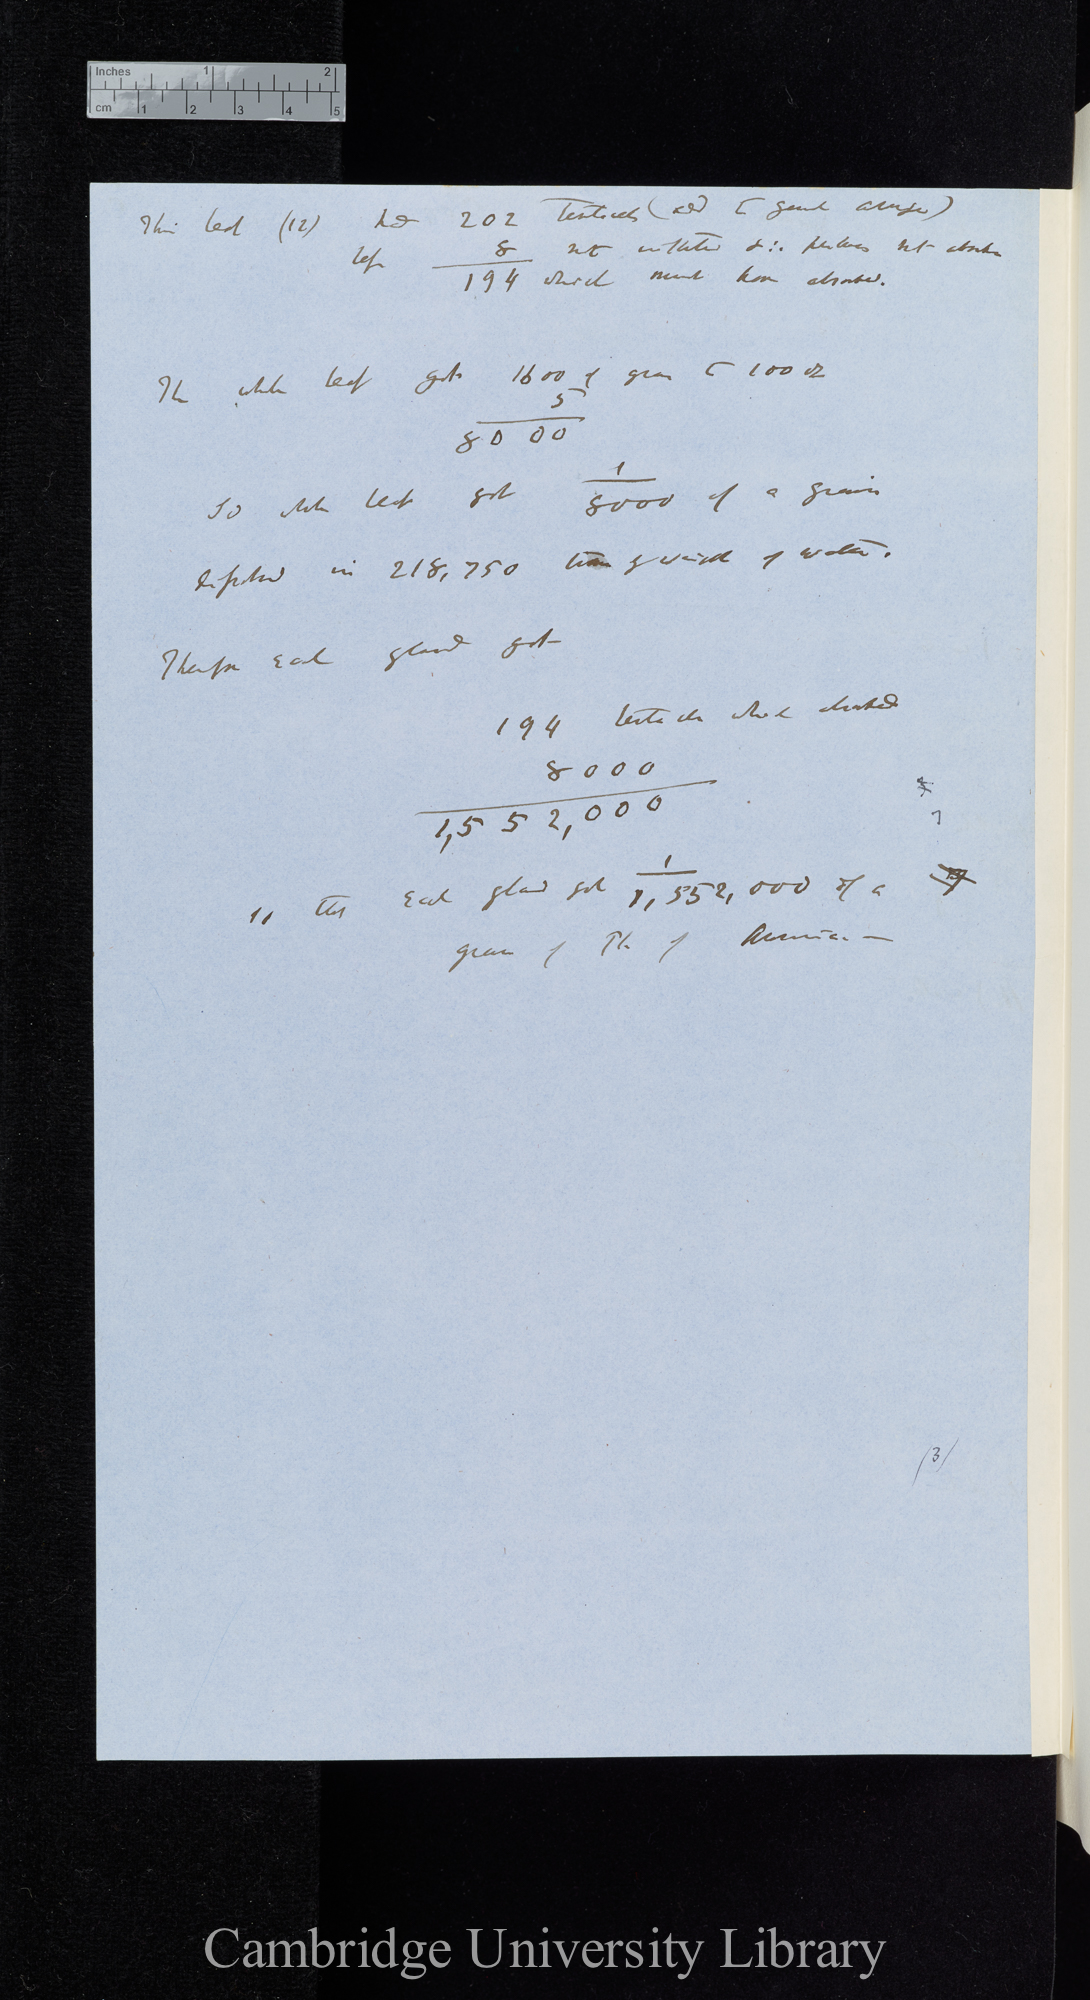 Inches 1 2
cm 1 2 3 4 5
This leaf (12) had 202 Tentacles (
left 8 not inflected & ∴ perhaps not absorb
194 which must have absorbed.
The whole leaf got 1600 of grain 100 oz
5
8000
So whole leaf got 1/8000 of a grain
dissolved in 218,750 times weight of water.
Therefore each gland got
194 tentacles which absorbed
8000
1,552,000
∴ each gland got 1/1,552,000 of a
grain of Ph. of Ammonia —
(3)
Cambridge University Library